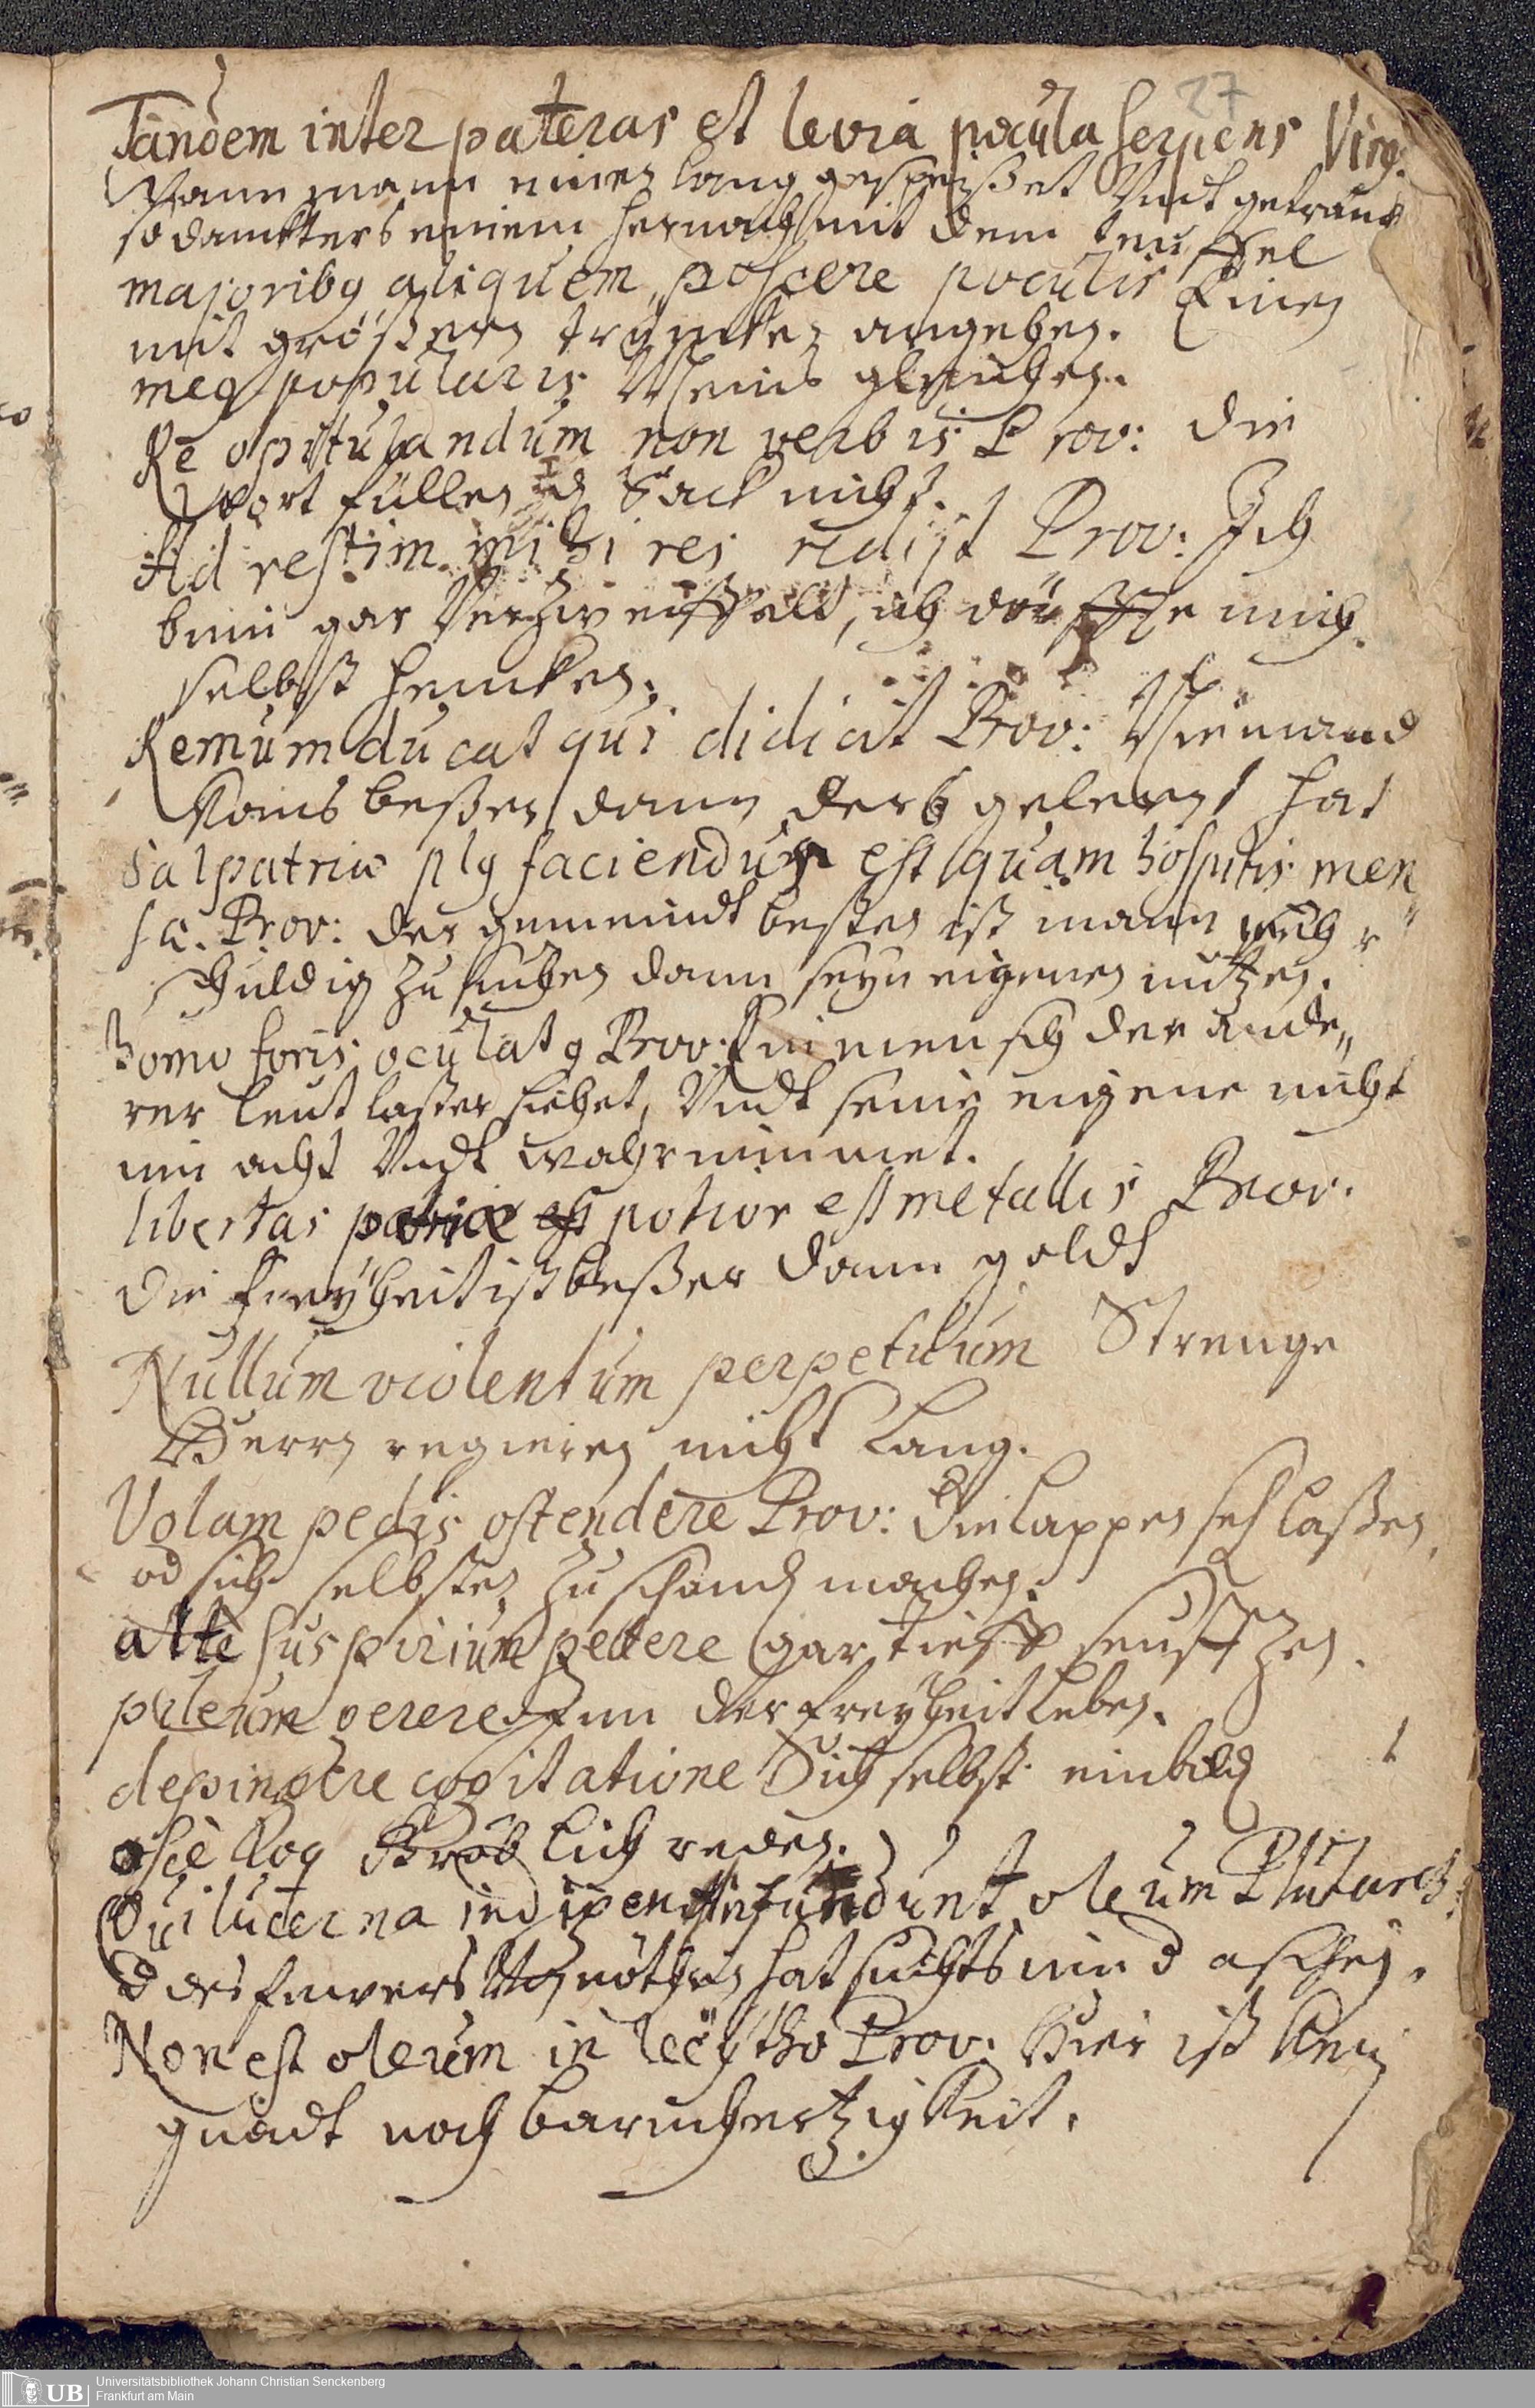 27
Tandem inter pateras et levia pocula serpens Virg:
Wann mann einen lang gespeißet Undt getränck
so danckters einem hernach mit dem teuffel
majoribq aliquem poscere poculis Einen
mit größern truncken angeben.
meq popularis Meins gleichen.
Re opitulandum non verbis Prov: die
Wort füllen den Sack nicht.
Ad restim mihi res redijt Prov: Ich
binn gar Verzweiffelt, ich dörffte mich
selbst hencken.
Remum ducat qui didicit Prov: Niemand
Kans beßer dann ders gelernt hat
Sal patriæ plq faciendum est quam hospitis men„
sa. Prov: der gemeindt besten ist mann mehr
schuldig zu suchen dann seyn eigenen nutzen.
homo foris oculatq Prov: Ein mensch der ande„
rer leut laster siehet, Undt seine eigene nicht
inn acht Undt wahrnimmet.
libertas patriæ potior est metallis Prov.
Die freyheit ist beßer dann goldt
Nullum violentum perpetuum Strenge
Herrn regieren nicht lang.
Volam pedis ostendere Prov: Die lappen seh laßen
od sich selbsten zu schand machen.
alte suspirium petere gar tieff seufftzen.
pileum gerere Inn der freyheit leben.
depingere cogitatione Sich selbst einbild
osce loq Gröblich reden.
Qui lucerna indigent infundunt oleum Plutarch:
d des fewers Von nöthen hat suchts inn d aschen.
Non est oleum in lecytho Prov: Hier ist kein
gnadt noch barmhertzigkeit.
UB
Universitätsbibliothek Johann Christian Senckenberg
Frankfurt am Main